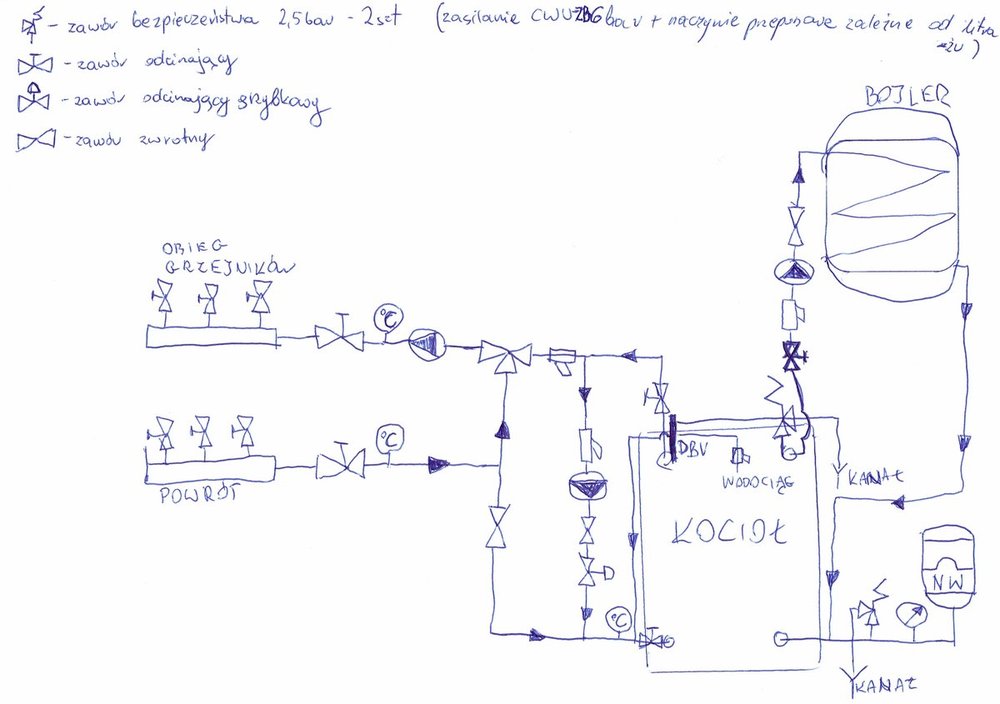 - zawór bezpieczeństwa 2,5bar - 2szt (zasilanie CWU 6bar + naczynie przeponowe zależne od litra
-żu)
- zawór odcinający
- zawór odcinający grzybkowy
- zawór zwrotny
BOJLER
OBIEG
GRZEJNIKÓW
°C
°C
POWRÓT
DBV
WODOCIĄG
KANAŁ
KOCIOŁ
NW
°C
KANAŁ